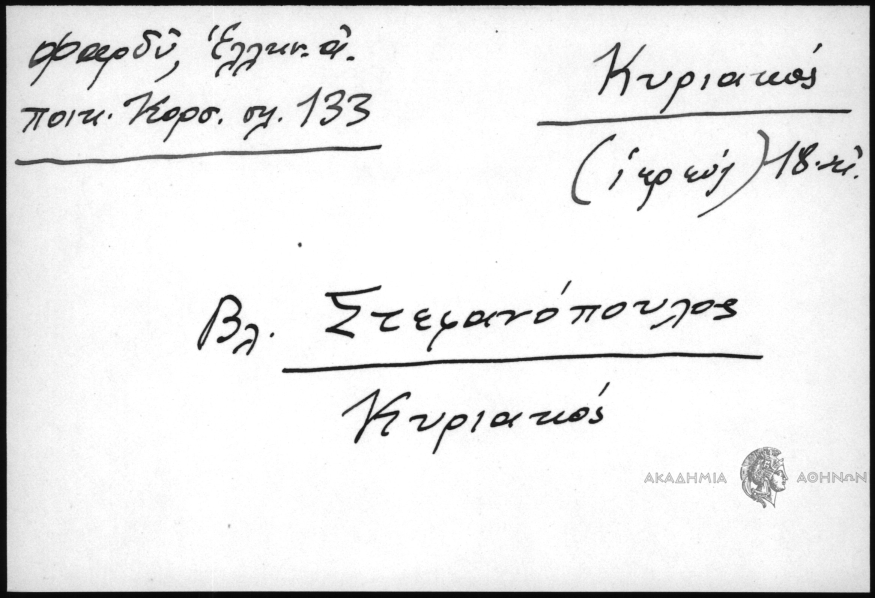 Φαρδῦ, Ἑλλην. ἀ.
ποικ. Κορσ. σλ. 133
Κυριακός
(ἱερεύς) 18.
Βλ. Στεφανόπουλος
Κυριακός
ΑΚΑΔΗΜΙΑ ΑΘΗΝΩΝ